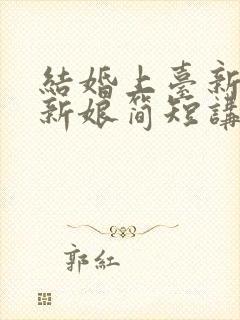 結婚上臺新
新娘簡短講
郭紅